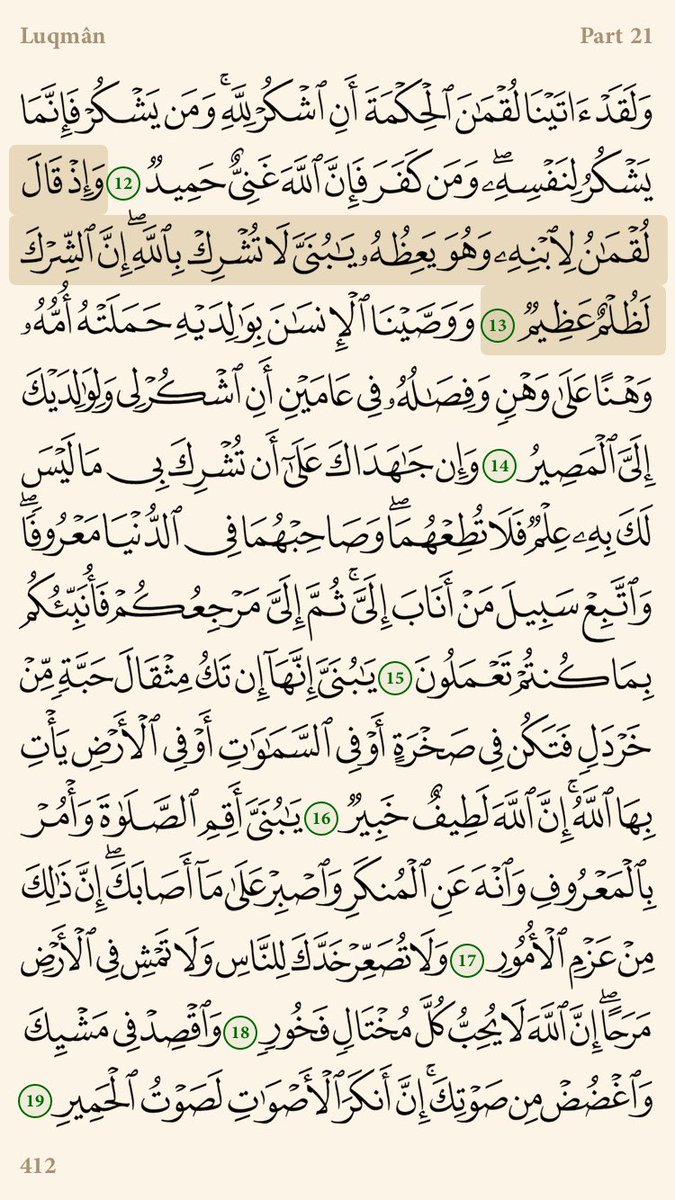 Luqmân Part 21
وَلَقَدۡ ءَاتَيۡنَا لُقۡمَٰنَ ٱلۡحِكۡمَةَ أَنِ ٱشۡكُرۡ لِلَّهِۚ وَمَن يَشۡكُرۡ فَإِنَّمَا
يَشۡكُرُ لِنَفۡسِهِۦۖ وَمَن كَفَرَ فَإِنَّ ٱللَّهَ غَنِيٌّ حَمِيدٞ 12 وَإِذۡ قَالَ
لُقۡمَٰنُ لِٱبۡنِهِۦ وَهُوَ يَعِظُهُۥ يَٰبُنَيَّ لَا تُشۡرِكۡ بِٱللَّهِۖ إِنَّ ٱلشِّرۡكَ
لَظُلۡمٌ عَظِيمٞ 13 وَوَصَّيۡنَا ٱلۡإِنسَٰنَ بِوَٰلِدَيۡهِ حَمَلَتۡهُ أُمُّهُۥ
وَهۡنًا عَلَىٰ وَهۡنٖ وَفِصَٰلُهُۥ فِي عَامَيۡنِ أَنِ ٱشۡكُرۡ لِي وَلِوَٰلِدَيۡكَ
إِلَيَّ ٱلۡمَصِيرُ 14 وَإِن جَٰهَدَاكَ عَلَىٰٓ أَن تُشۡرِكَ بِي مَا لَيۡسَ
لَكَ بِهِۦ عِلۡمٞ فَلَا تُطِعۡهُمَاۖ وَصَاحِبۡهُمَا فِي ٱلدُّنۡيَا مَعۡرُوفٗاۖ
وَٱتَّبِعۡ سَبِيلَ مَنۡ أَنَابَ إِلَيَّۚ ثُمَّ إِلَيَّ مَرۡجِعُكُمۡ فَأُنَبِّئُكُم
بِمَا كُنتُمۡ تَعۡمَلُونَ 15 يَٰبُنَيَّ إِنَّهَآ إِن تَكُ مِثۡقَالَ حَبَّةٖ مِّنۡ
خَرۡدَلٖ فَتَكُن فِي صَخۡرَةٍ أَوۡ فِي ٱلسَّمَٰوَٰتِ أَوۡ فِي ٱلۡأَرۡضِ يَأۡتِ
بِهَا ٱللَّهُۚ إِنَّ ٱللَّهَ لَطِيفٌ خَبِيرٞ 16 يَٰبُنَيَّ أَقِمِ ٱلصَّلَوٰةَ وَأۡمُرۡ
بِٱلۡمَعۡرُوفِ وَٱنۡهَ عَنِ ٱلۡمُنكَرِ وَٱصۡبِرۡ عَلَىٰ مَآ أَصَابَكَۖ إِنَّ ذَٰلِكَ
مِنۡ عَزۡمِ ٱلۡأُمُورِ 17 وَلَا تُصَعِّرۡ خَدَّكَ لِلنَّاسِ وَلَا تَمۡشِ فِي ٱلۡأَرۡضِ
مَرَحًاۖ إِنَّ ٱللَّهَ لَا يُحِبُّ كُلَّ مُخۡتَالٖ فَخُورٖ 18 وَٱقۡصِدۡ فِي مَشۡيِكَ
وَٱغۡضُضۡ مِن صَوۡتِكَۚ إِنَّ أَنكَرَ ٱلۡأَصۡوَٰتِ لَصَوۡتُ ٱلۡحَمِيرِ 19
412